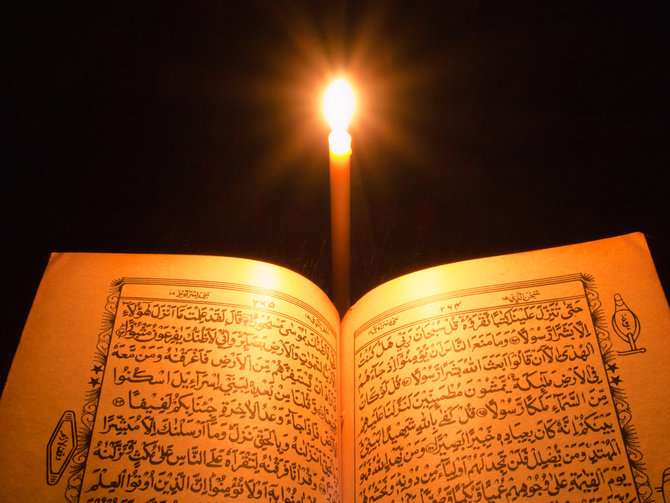 ٢٩٤
حَتّٰى تُنَزِّلَ عَلَيْنَا كِتٰبًا نَّقْرَؤُهٗ قُلْ سُبْحَانَ رَبِّيْ هَلْ كُنْتُ
اِلَّا بَشَرًا رَّسُوْلًا وَمَا مَنَعَ النَّاسَ اَنْ يُّؤْمِنُوْٓا اِذْ جَآءَهُمُ
الْهُدٰٓى اِلَّآ اَنْ قَالُوْٓا اَبَعَثَ اللّٰهُ بَشَرًا رَّسُوْلًا قُلْ لَّوْ كَانَ
فِي الْاَرْضِ مَلٰٓئِكَةٌ يَّمْشُوْنَ مُطْمَئِنِّيْنَ لَنَزَّلْنَا عَلَيْهِمْ
مِّنَ السَّمَآءِ مَلَكًا رَّسُوْلًا قُلْ كَفٰى بِاللّٰهِ شَهِيْدًا بَيْنِيْ وَ
بَيْنَكُمْ اِنَّهٗ كَانَ بِعِبَادِهٖ خَبِيْرًا بَصِيْرًا وَمَنْ يَّهْدِ اللّٰهُ فَهُوَ
الْمُهْتَدِ وَمَنْ يُّضْلِلْ فَلَنْ تَجِدَ لَهُمْ اَوْلِيَآءَ مِنْ دُوْنِهٖ وَنَحْشُرُهُمْ
يَوْمَ الْقِيٰمَةِ عَلٰى وُجُوْهِهِمْ
٢٩٥
يٰمُوْسٰى مَسْحُوْرًا قَالَ لَقَدْ عَلِمْتَ مَآ اَنْزَلَ هٰٓؤُلَآءِ
اِلَّا رَبُّ السَّمٰوٰتِ وَالْاَرْضِ بَصَآئِرَ وَاِنِّيْ لَاَظُنُّكَ يٰفِرْعَوْنُ مَثْبُوْرًا
فَاَرَادَ اَنْ يَّسْتَفِزَّهُمْ مِّنَ الْاَرْضِ فَاَغْرَقْنٰهُ وَمَنْ مَّعَهٗ
جَمِيْعًا وَّقُلْنَا مِنْ بَعْدِهٖ لِبَنِيْٓ اِسْرَآءِيْلَ اسْكُنُوا
الْاَرْضَ فَاِذَا جَآءَ وَعْدُ الْاٰخِرَةِ جِئْنَا بِكُمْ لَفِيْفًا
وَبِالْحَقِّ اَنْزَلْنٰهُ وَبِالْحَقِّ نَزَلَ وَمَآ اَرْسَلْنٰكَ اِلَّا مُبَشِّرًا
وَّنَذِيْرًا وَقُرْاٰنًا فَرَقْنٰهُ لِتَقْرَاَهٗ عَلَى النَّاسِ عَلٰى مُكْثٍ وَّنَزَّلْنٰهُ
تَنْزِيْلًا قُلْ اٰمِنُوْا بِهٖٓ اَوْ لَا تُؤْمِنُوْا اِنَّ الَّذِيْنَ اُوْتُوا الْعِلْمَ